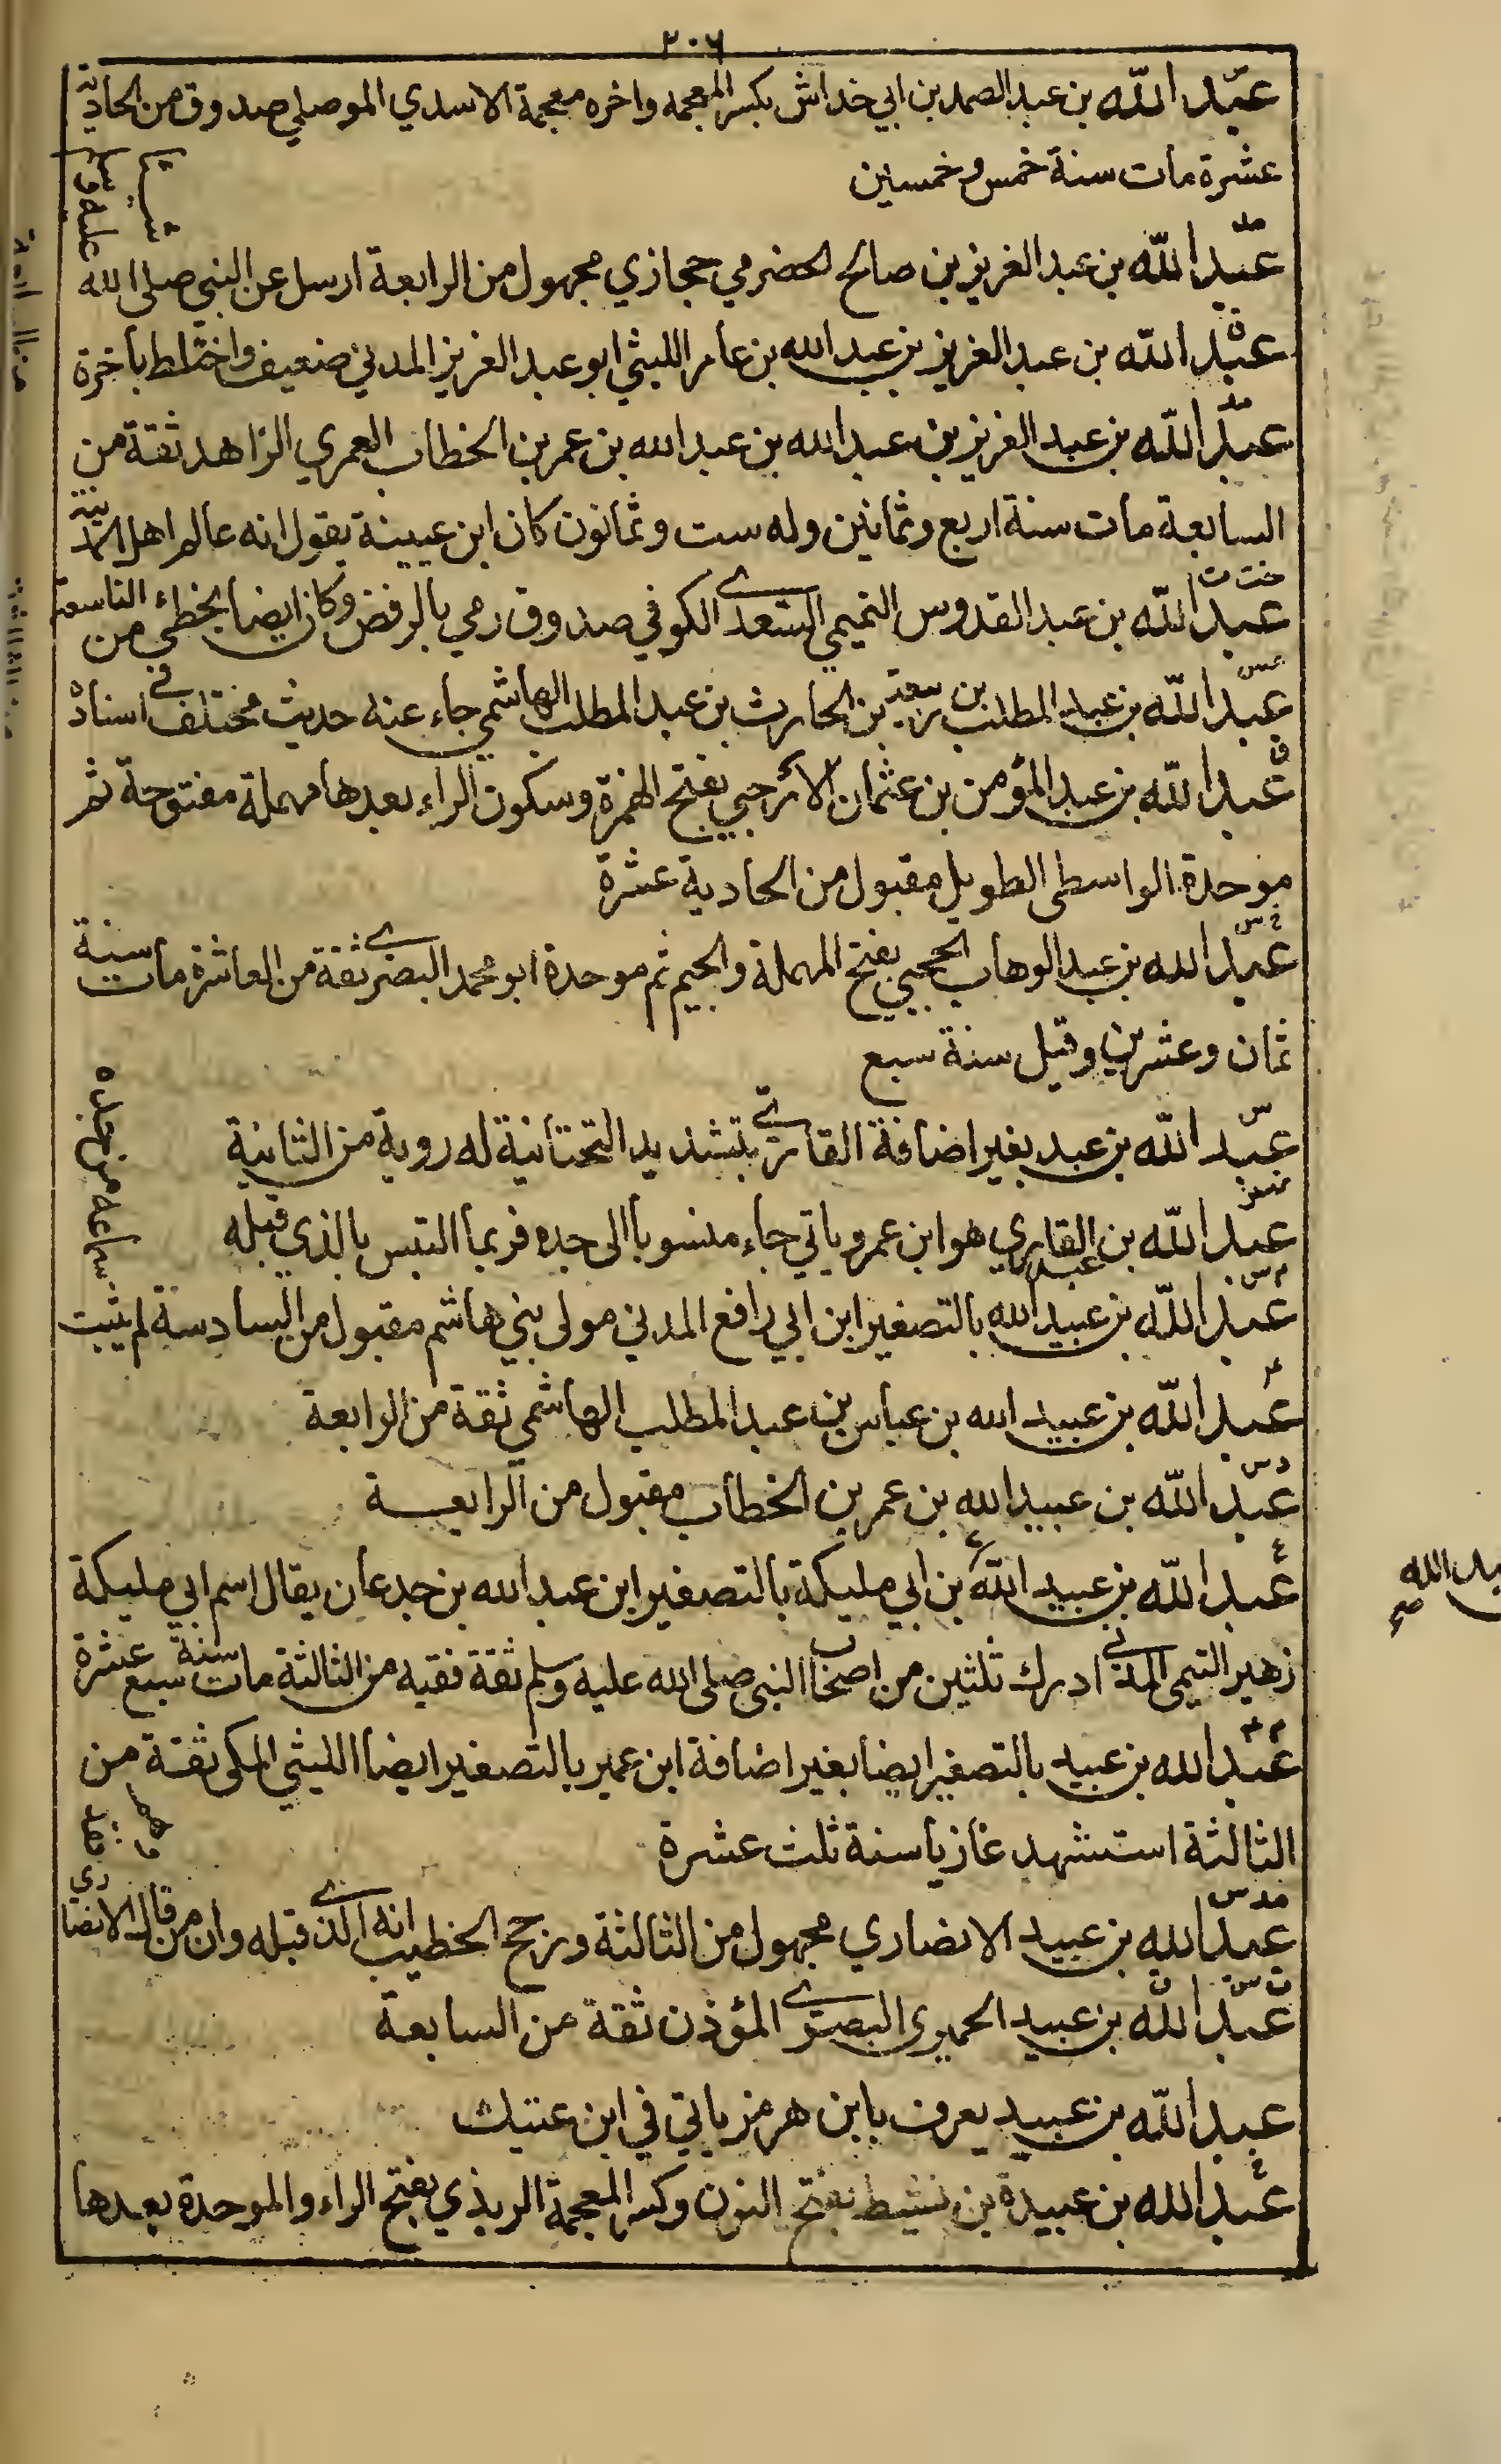 ٢٠٦
عبد الله بن عبد الصمد بن ابي خداش بكسر المعجمه واخره معجمة الاسدي الموصلي صدوق من الحادية
عشرة مات سنة خمس وخمسين
مد
عبد الله بن عبد العزيز بن صالح الحضرمي حجازي مجهول من الرابعة ارسل عن النبي صلى الله
عليه وسلم شيئا
ق
عبد الله بن عبد العزيز بن عبد الله بن عامر الليثي ابو عبد العزيز المدني ضعيف واختلط بأخرة
مد
عبد الله بن عبد العزيز بن عبد الله بن عبد الله بن عمر بن الخطاب العمري الزاهد ثقة من
السابعة مات سنة اربع وثمانين وله ست وثمانون كان ابن عيينة يقول انه عالم اهل المدينة
خت ت
عبد الله بن عبد القدوس التميمي السعدي الكوفي صدوق رمي بالرفض وكان ايضا يخطي من التاسعة
عس
عبد الله بن عبد المطلب بن ربيعة بن الحارث بن عبد المطلب الهاشمي جاء عنه حديث مختلف في اسناده
ق
عبد الله بن عبد المؤمن بن عثمان الأرحبي بفتح الهمزة وسكون الراء بعدها مهملة مفتوحة ثم
موحدة الواسطي الطويل مقبول من الحادية عشرة
خ س
عبد الله بن عبد الوهاب الحجبي بفتح المهملة والجيم ثم موحدة ابو محمد البصري ثقة من العاشرة مات سنة
ثمان وعشرين وقيل سنة سبع
س
عبد الله بن عبد بغير اضافة القاري بتشديد التحتانية له روية من الثانية
عبد الله بن عبد القاري هو ابن عمرو ياتي جاء منسوبا الى جده فربما التبس بالذي قبله
م س
عبد الله بن عبيد الله بالتصغير ابن ابي رافع المدني مولى بني هاشم مقبول من السادسة لم يثبت
سماعه من جده
عبد الله بن عبيد الله بن عباس بن عبد المطلب الهاشمي ثقة من الرابعة
د س
عبد الله بن عبيد الله بن عمر بن الخطاب مقبول من الرابعة
ع
عبد الله بن عبيد الله بن ابي مليكة بالتصغير ابن عبد الله بن جدعان يقال اسم ابي مليكة
زهير التيمي المدني ادرك ثلثين من اصحاب النبي صلى الله عليه وسلم ثقة فقيه من الثالثة مات سنة سبع عشرة
م ٤
عبد الله بن عبيد بالتصغير ايضا بغير اضافة ابن عمير بالتصغير ايضا الليثي المكي ثقة من
الثالثة استشهد غازيا سنة ثلث عشرة
مد س
عبد الله بن عبيد الانصاري مجهول من الثالثة ورجح الخطيب انه الذي قبله وان من قال الانصاري
فقد وهم
ت س ق
عبد الله بن عبيد الحميري البصري المؤذن ثقة من السابعة
عبد الله بن عبيد يعرف بابن هرمز ياتي في ابن عتيك
خ
عبد الله بن عبيدة بن نشيط بفتح النون وكسر المعجمة الربذي بفتح الراء والموحدة بعدها